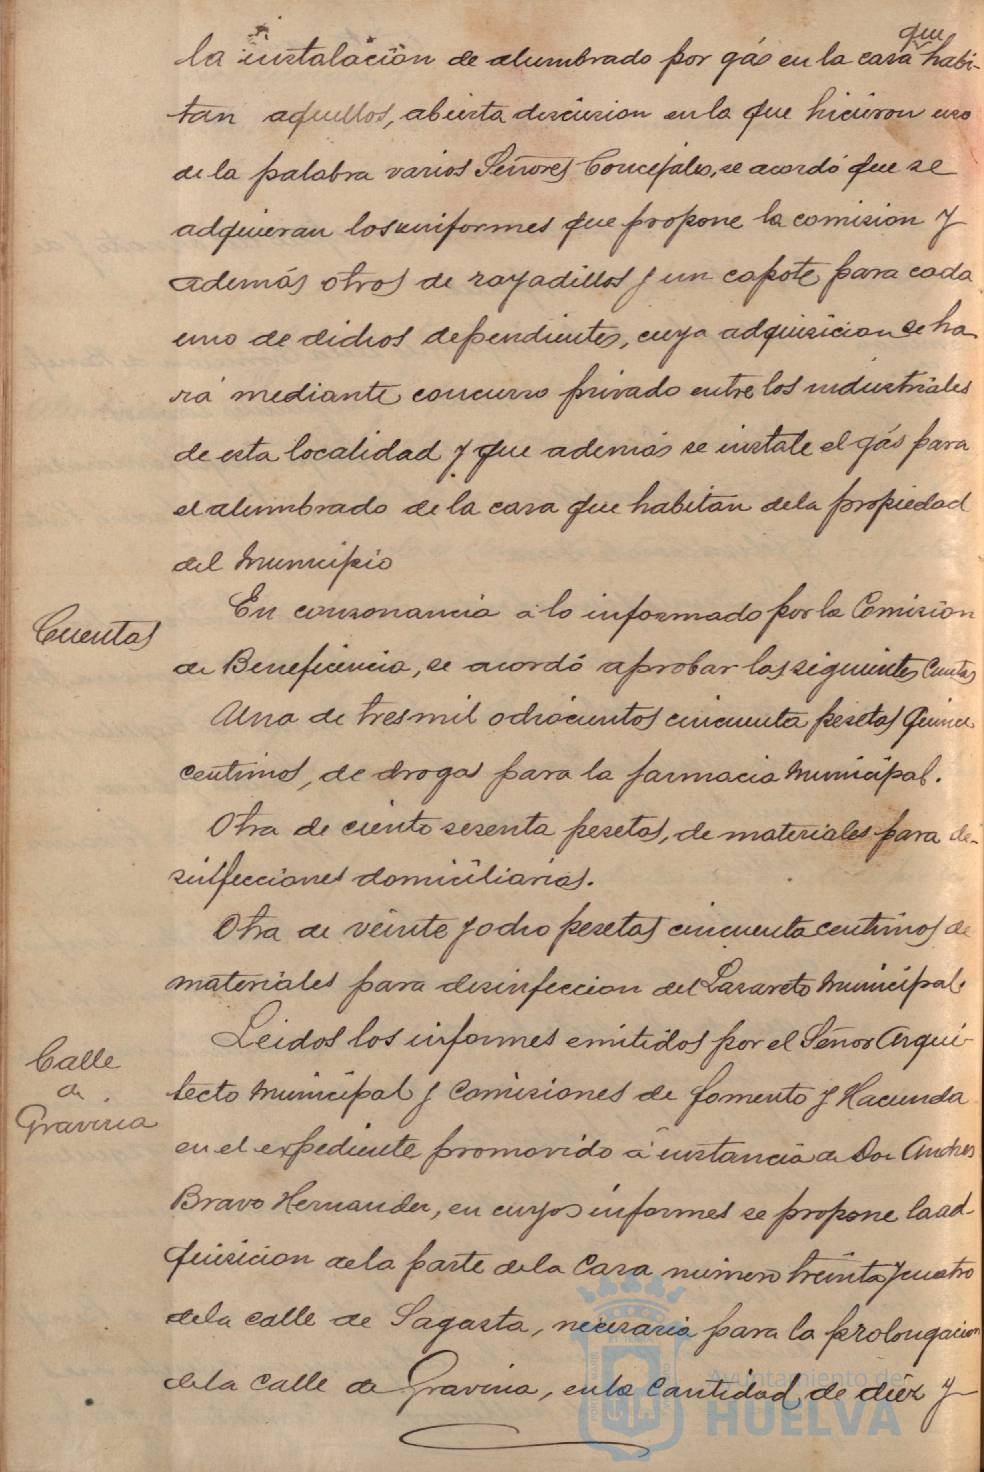 la instalación de alumbrado por gás en la casa que habi-
tan aquellos, abierta discusion en la que hicieron uso
de la palabra varios Señores Concejales, se acordó que se
adquieran los uniformes que propone la comision y
además otros de rayadillos y un capote para cada
uno de dichos dependientes, cuya adquisicion se ha
rá mediante concurso privado entre los industriales
de esta localidad y que además se instale el gás para
el alumbrado de la casa que habitan de la propiedad
del Municipio
Cuentas
En consonancia a lo informado por la Comision
de Beneficencia, se acordó aprobar las siguientes Cuentas
Una de tres mil ochocientos cincuenta pesetas quince
centimos, de drogas para la farmacia Municipal.
Otra de ciento sesenta pesetas, de materiales para de-
sinfecciones domiciliarias.
Otra de veinte y ocho pesetas cincuenta centimos de
materiales para desinfeccion del Lazareto Municipal.
Calle
de
Gravina
Leidos los informes emitidos por el Señor Arqui-
tecto Municipal y Comisiones de fomento y Hacienda
en el expediente promovido á instancia de Don Andres
Bravo Hernandez, en cuyos informes se propone la ad-
quisicion de la parte de la Casa numero treinta y cuatro
de la calle de Sagasta, necesaria para la prolongacion
de la Calle de Gravina, en la Cantidad de diez y
Ayuntamiento de
HUELVA